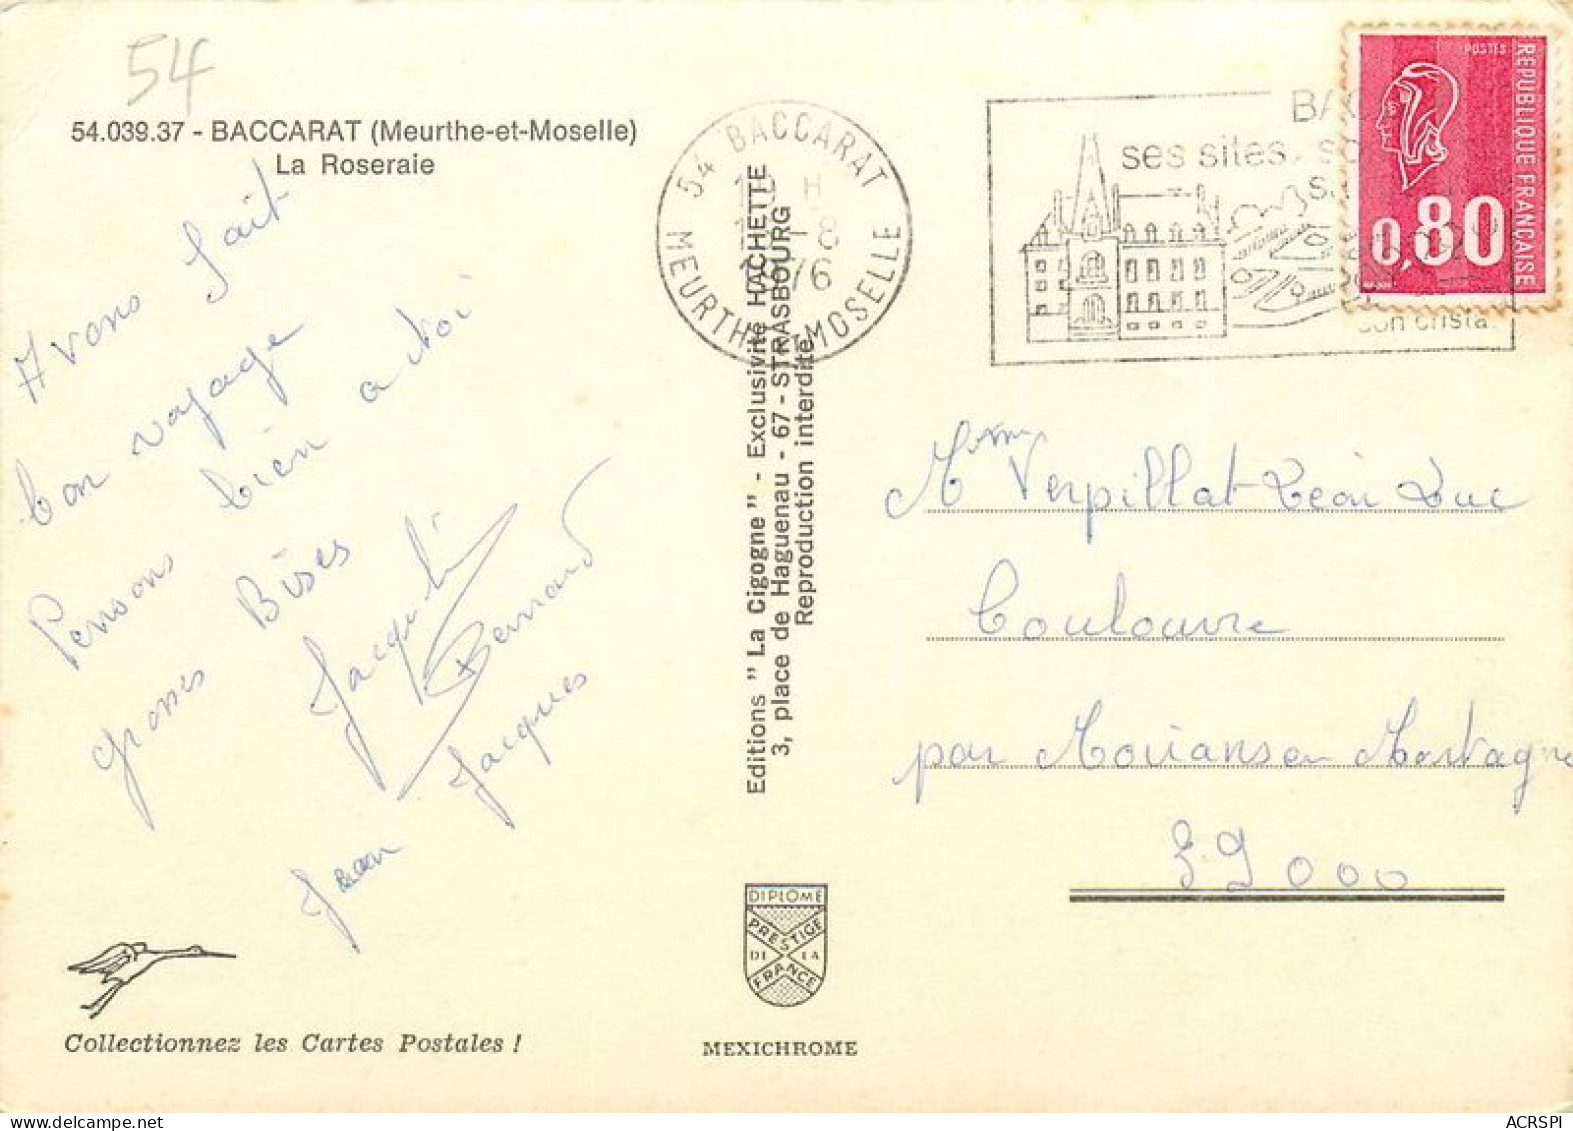 54
54.039.37 - BACCARAT (Meurthe-et-Moselle)
La Roseraie
Avons fait
bon voyage
Pensons bien a toi
grosses Bises
Jacqueli
Bernard
Jean Jacques
Collectionnez les Cartes Postales !
Editions " La Cigogne" - Exclusivité HACHETTE
3, place de Haguenau - 67 - STRASBOURG
Reproduction interdite
DIPLOME
PRESTIGE
DE LA
FRANCE
MEXICHROME
54 BACCARAT
H
-8
76
MEURTHE MOSELLE
BAC
ses sites, so
son crista
POSTES
REPUBLIQUE FRANÇAISE
0,80
Mme Verpillat Léon Luc
Coulouvre
par
ACRSPI